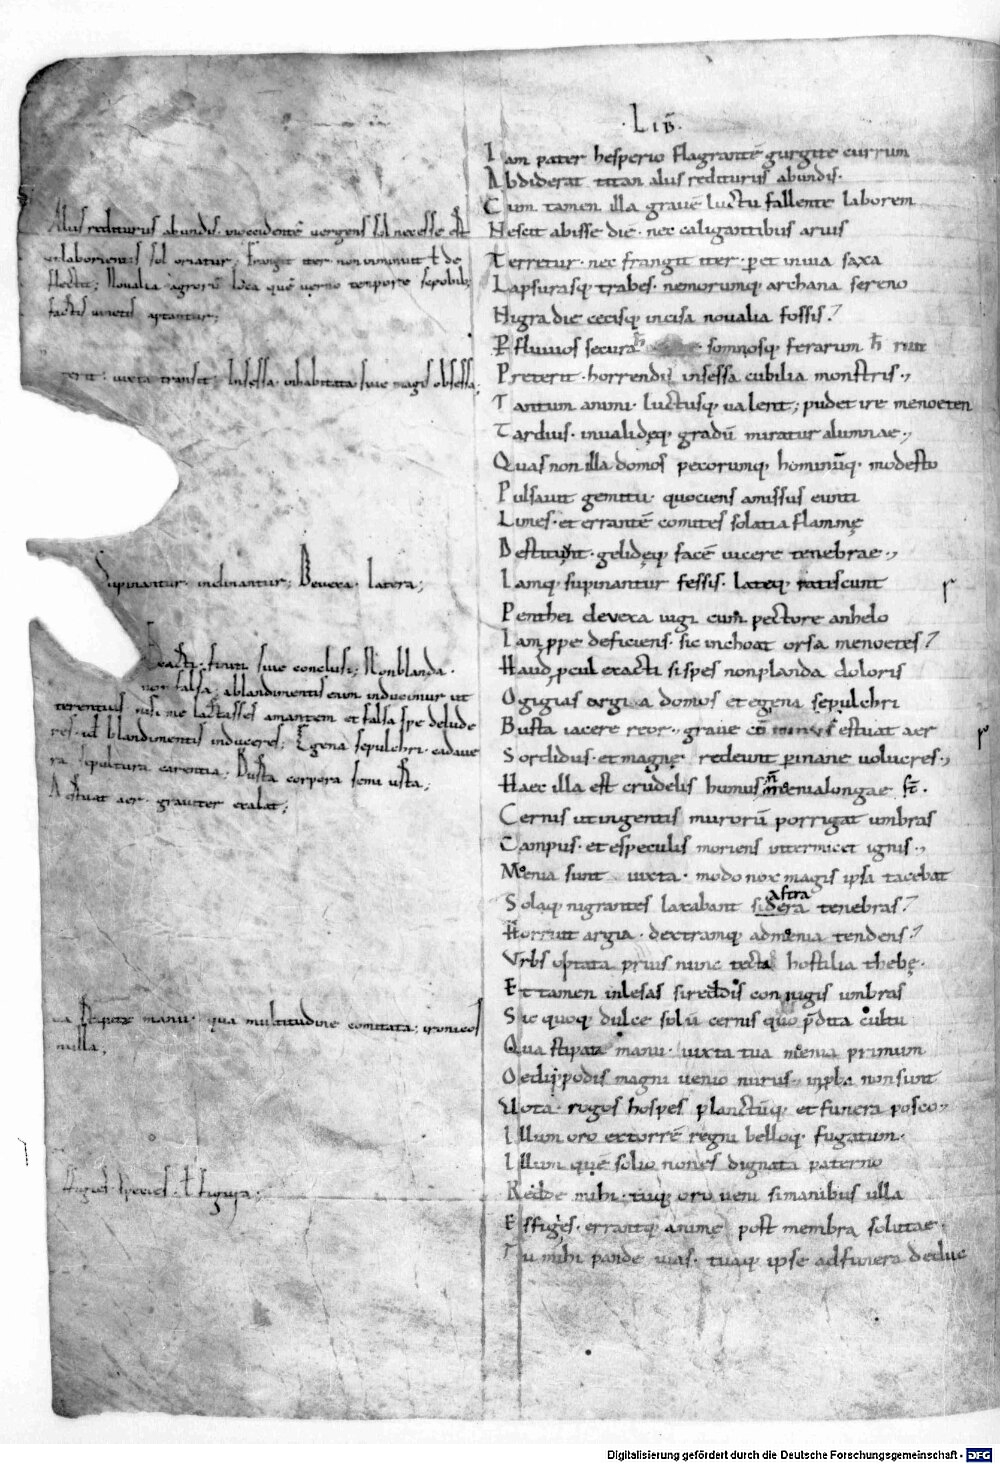 · LIB̄ ·
Iam pater hesperio flagrantē gurgite currum
Abdiderat titan aliis rediturus abundis·
Cum tamen illa grauē luctu fallente laborem
Nescit abisse diē· nec caligantibus aruis
Terretur· nec frangit iter· ꝑ et inuia saxa
Lapsurasq; trabes· nemorumq; archana sereno
Nigra die cecisq; incisa noualia fossis?
P̱ fluuios secura somnosq; ferarum ħ ruit
Preterit· horrendis insessa cubilia monstris·,
Tantum animi· luctusq; ualent; pudet ire menoeten
Tardius· inualidęq; gradū miratur alumnae·,
Quas non illa domos pecorumq; hominūq; modesto
Pulsauit gemitu· quociens amissus eunti
Limes· et errantē comites solatia flammę
Destitunt· gelidęq; facē uicere tenebrae·,
Iamq; supinantur fessis· lateq; fatiscunt
Penthei deuexa iugi cum pectore anhelo
Iam ꝓpe deficiens· sic inchoat orsa menoetes?
Haud ꝓcul exacti si spes non planda doloris
Ogigias argia domos et egena sepulchri
Busta iacere reor·, graue estuat aer
Sordidus· et magnę redeunt ꝑ inane uolucres·,
Haec illa est crudelis humus moenia longae st̄·
Cernis ut ingentis murorū porrigat umbras
Campus· et e speculis moriens intermicet ignis·,
Moenia sunt iuxta· modo nox magis ipsa tacebat
astra
Solaq; nigrantes laxabant sidera tenebras?
Horruit argia· dextramq; ad moenia tendens?
Vrbs optata prius nunc tecta hostilia thebę·
Et tamen inlesas si reddis coniugis umbras
Sic quoq; dulce solū cernis quo p̄dita cultu
Qua stipata manu· iuxta tua moenia primum
Oedippodis magni uenio nurus·, inꝓba non sunt
Uota· rogos hospes planctūq; et funera posco·,
Illum oro extorrē regni belloq; fugatum·
Illum quē solio non es dignata paterno
Redde mihi· tuq; oro ueni si manibus ulla
Effigies· errantq; animę post membra solutae·
Tu mihi pande uias· tuaq; ipse ad funera deduc
Aliis rediturus abundis· in occidentē uergens sol necesse est
orientis sol oriatur; Frangit iter· non imminuit ł de
flectit; Noualia· agrorū loca quē uerno tempore sepibus
factis uinetis aptantur;
terit· iuxta transit; Insessa· inhabitata siue magis obsessa;
Supinantur· inclinantur; Deuexa· latera;
Exacti· finiti siue conclusi; Non blanda·
non falsa; ablandimentis eum inducimur ut
terentius nisi me lactasses amantem et falsa spe delude
res· uł blandimentis induceres; Egena sepulchri· cadaue
ra sepultura carentia; Busta corpora semi usta;
Aestuat aer· grauiter exalat;
Stipata manu· qua multitudine comitata; ironicos
nulla,
Effigies· species· ł figura·
Digitalisierung gefördert durch die Deutsche Forschungsgemeinschaft - DFG